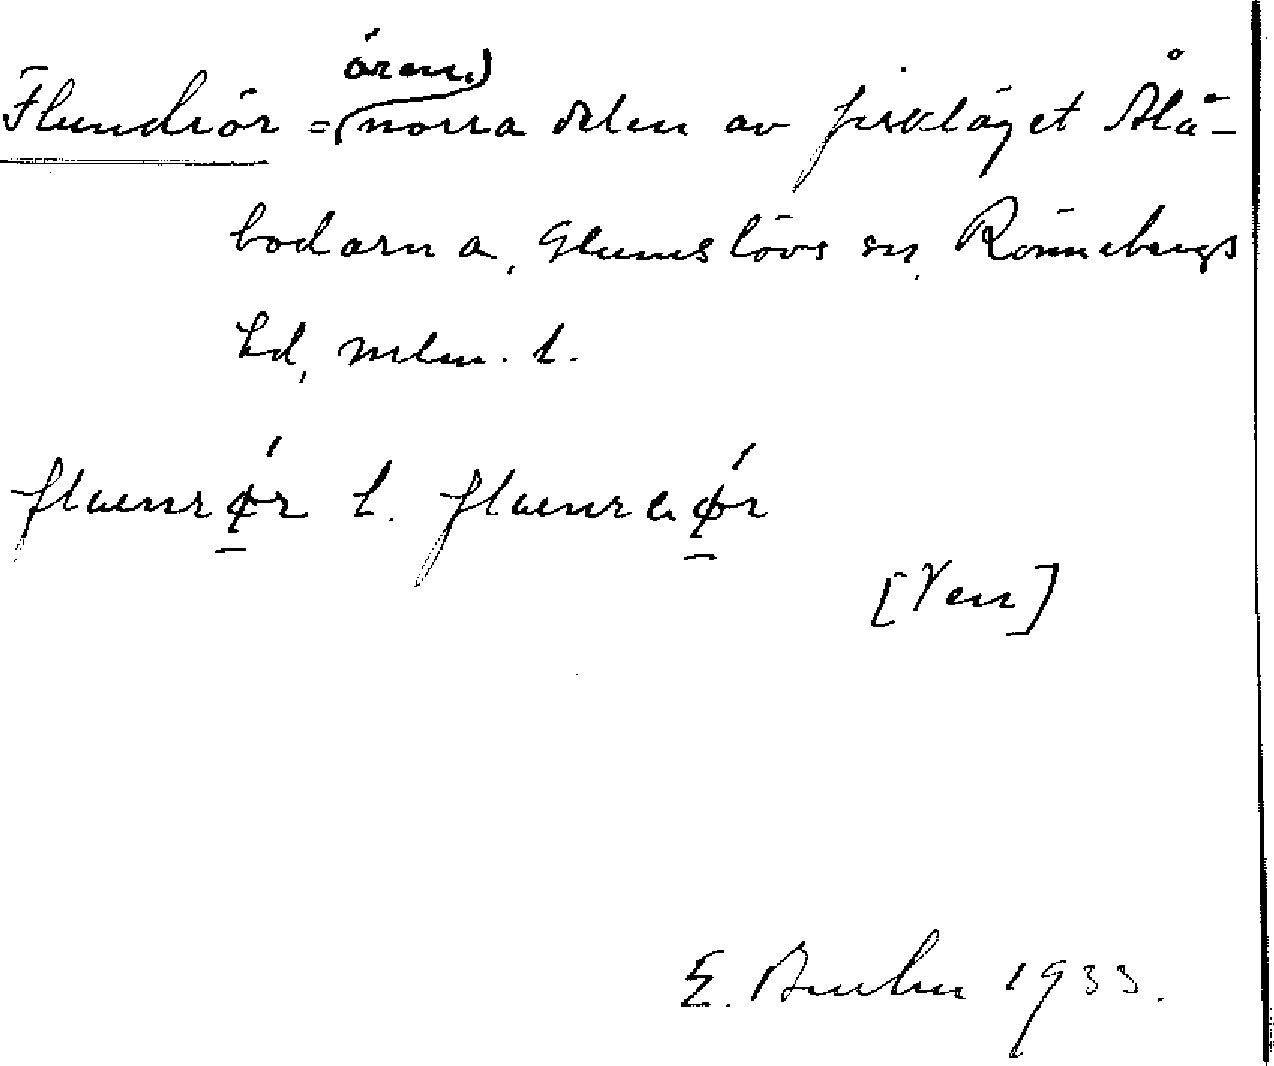 ören)
Flundrör = (norra delen av fiskläget Ålå-
bodarna, Glumslövs sn, Rönnebergs
hd, mlm. l.
fluenrør l. fluenraør
[Ven]
E. Bruhn 1933.